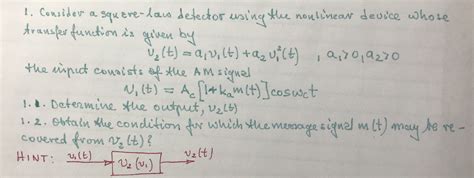 1. Consider a square-law detector using the nonlinear device whose
transfer function is given by
v₂(t) = a₁v₁(t) + a₂v₁²(t) , a₁>0, a₂>0
the input consists of the AM signal
v₁(t) = Ac [1+kam(t)] cosωct
1.1. Determine the output, v₂(t)
1.2. obtain the condition for which the message signal m(t) may be re-
covered from v₂(t)?
HINT: v₁(t) v₂(v₁) v₂(t)